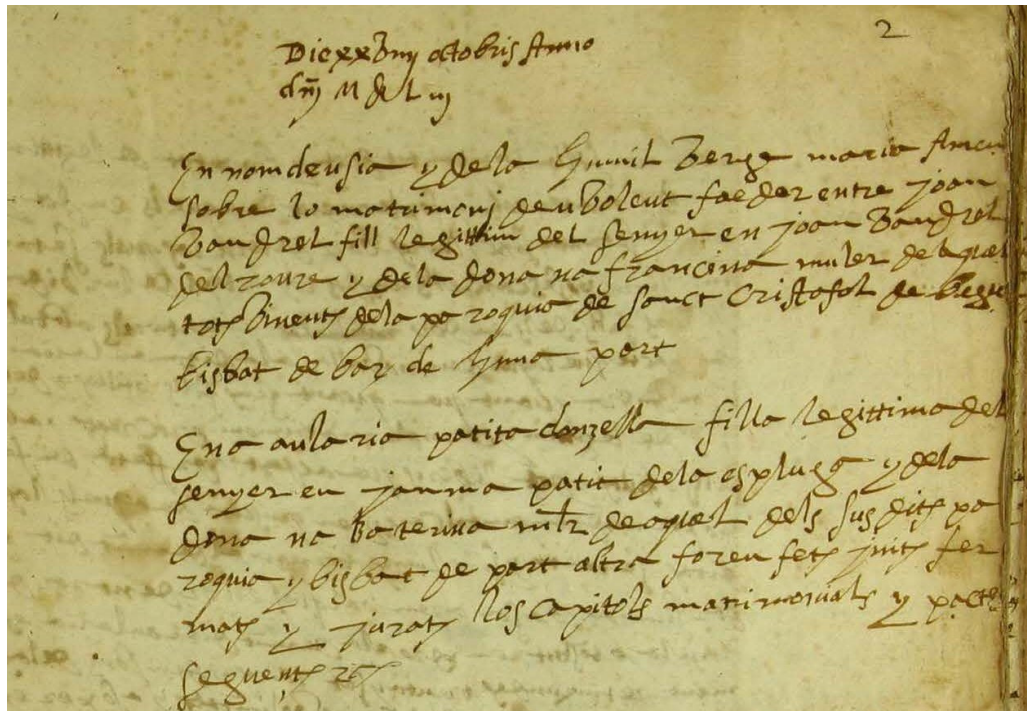 2
Die xxviiij octobris Anno
dnj M d L iij
En nom deu sia y de la humil verge maria Amen
sobre lo matrimonj deu volent faedor entre joan
vandrel fill legittim del senyer en joan vandrel
del roure y dela dona na francina muler de aquel
tots vivents dela paroquia de sanct cristofol de begu
bisbat de bar de huna part
E na aularia patita donzella filla legittima del
senyer en jauma patit dela espluga y dela
dona na katerina mlr de aquel dels susdits pa
roquia y bisbat de part altra foren fets junts fer
mats y jurats los capitols matrimonials y pactes
seguents